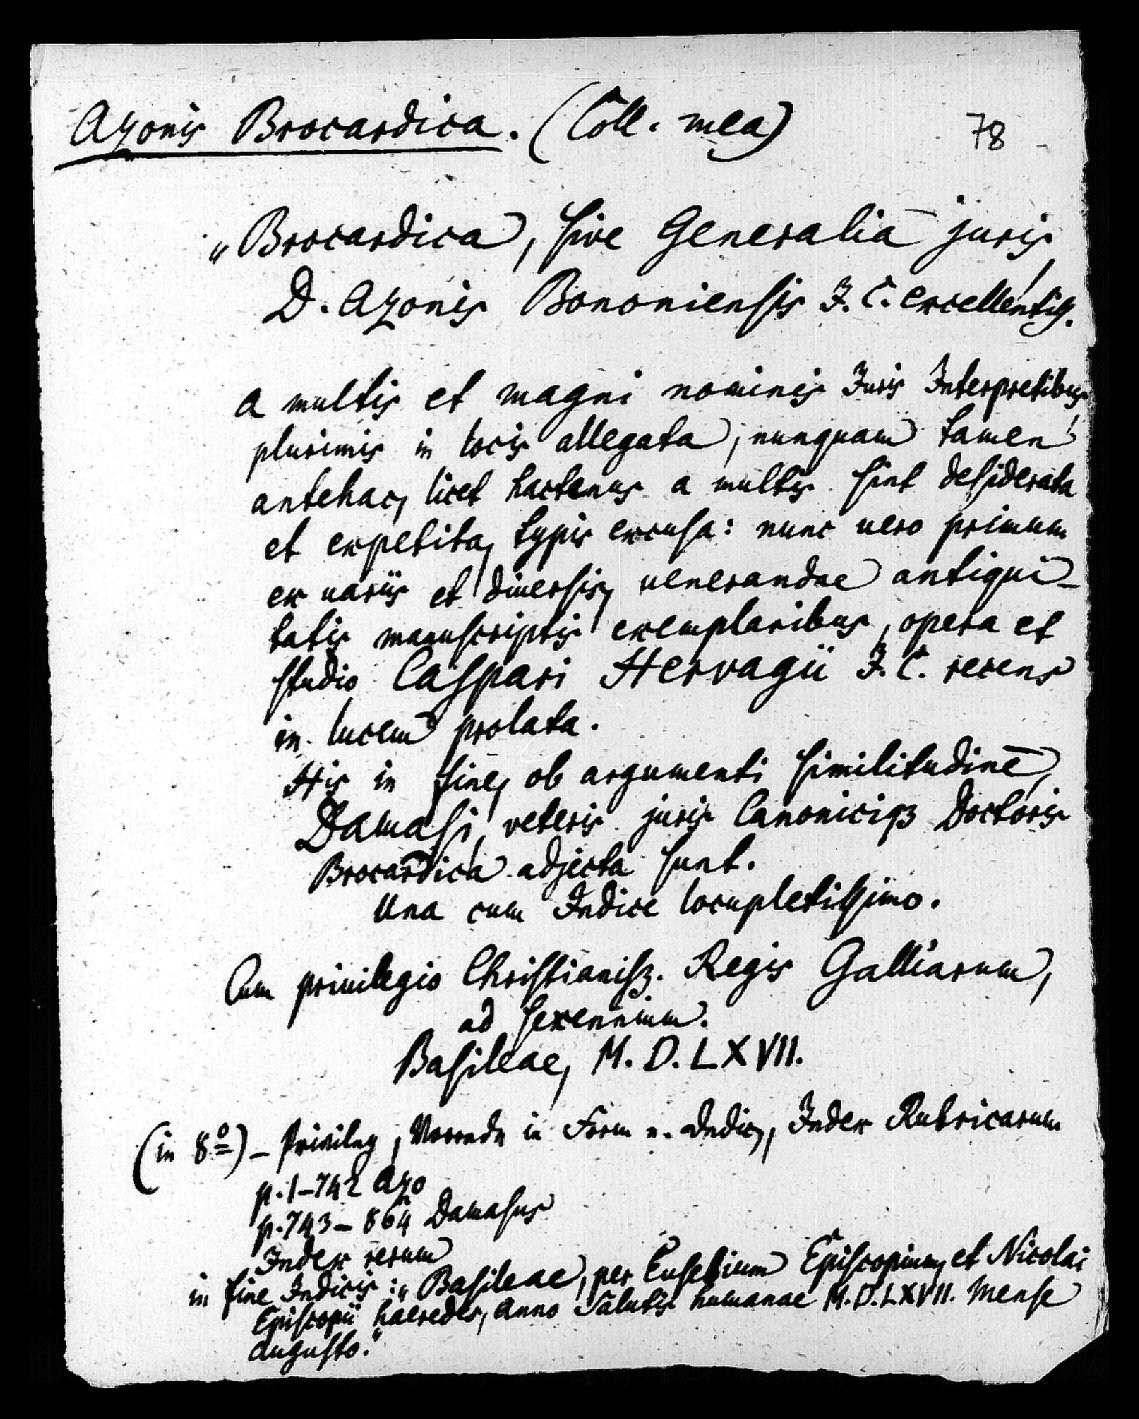 Azonis Brocardica. (Coll. mea) 78
„Brocardica, sive Generalia juris
D. Azonis Bononiensis J. C. excellentiss.
a multis et magni nominis Juris Interpretibus
plurimis in locis allegata, nunquam tamen
antehac, licet hactenus a multis sint desiderata
et expetita, typis excusa: nunc uero primum
ex uariis et diuersis, uenerandae antiqui-
tatis manuscriptis exemplaribus, opera et
studio Caspari Hervagii J. C. recens
in lucem prolata.
His in fine, ob argumenti similitudinē,
Damasi, veteris juris Canonicíq3 Doctoris
Brocardica adjecta sunt.
Una cum Indice locupletissimo.
Cum priuilegio Christianiss. Regis Galliarum,
ad sexennium.
Basileae, M. D. LXVII.
(in 8º) – Privileg, Vorrede in Form e. Dedic., Index Rubricarum
p. 1–742 Azo
p. 743–864 Damasus
Index rerum
in fine Indicis: „Basileae, per Eusebium Episcopium, et Nicolai
Episcopii haeredes, anno Salutis humanae M.D.LXVII. Mense
Augusto."